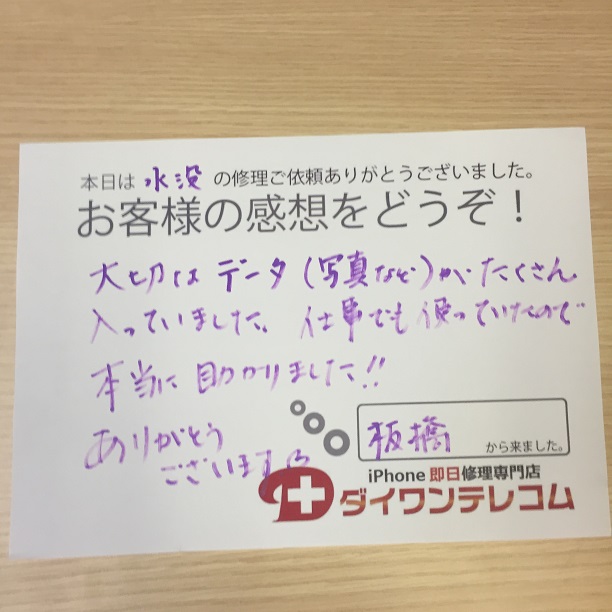 本日は 水没 の修理ご依頼ありがとうございました。
お客様の感想をどうぞ！
大切な データ (写真など)が、たくさん
入っていました、仕事でも使っていたので
本当に助かりました!!
ありがとう
ございます
板橋 から来ました。
iPhone 即日修理専門店
ダイワンテレコム